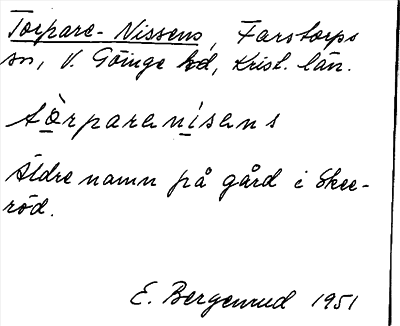 Torpare-Nissens, Farstorps
sn, V. Göinge hd, Krist. län.
tòrparenisens
Äldre namn på gård i Skee-
röd.
E. Bergenrud 1951